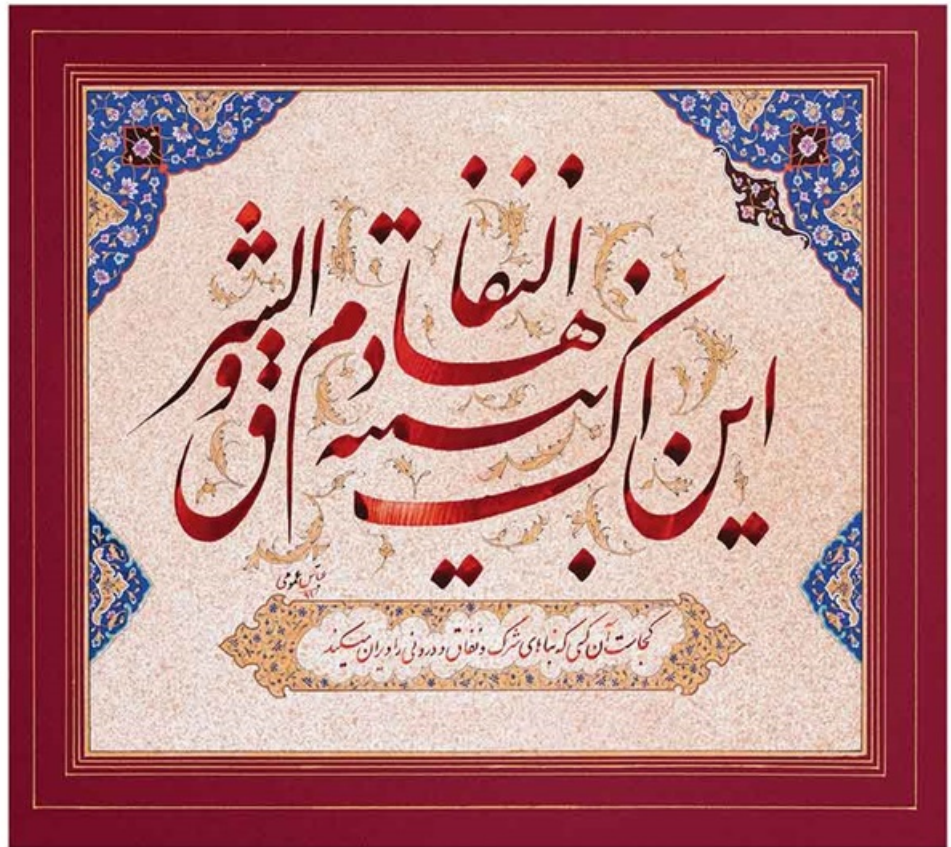 این هادم ابنیة الشرک و النفاق
عباس
کجاست آن کسی که بناهای شرک و نفاق و دورویی را ویران میکند